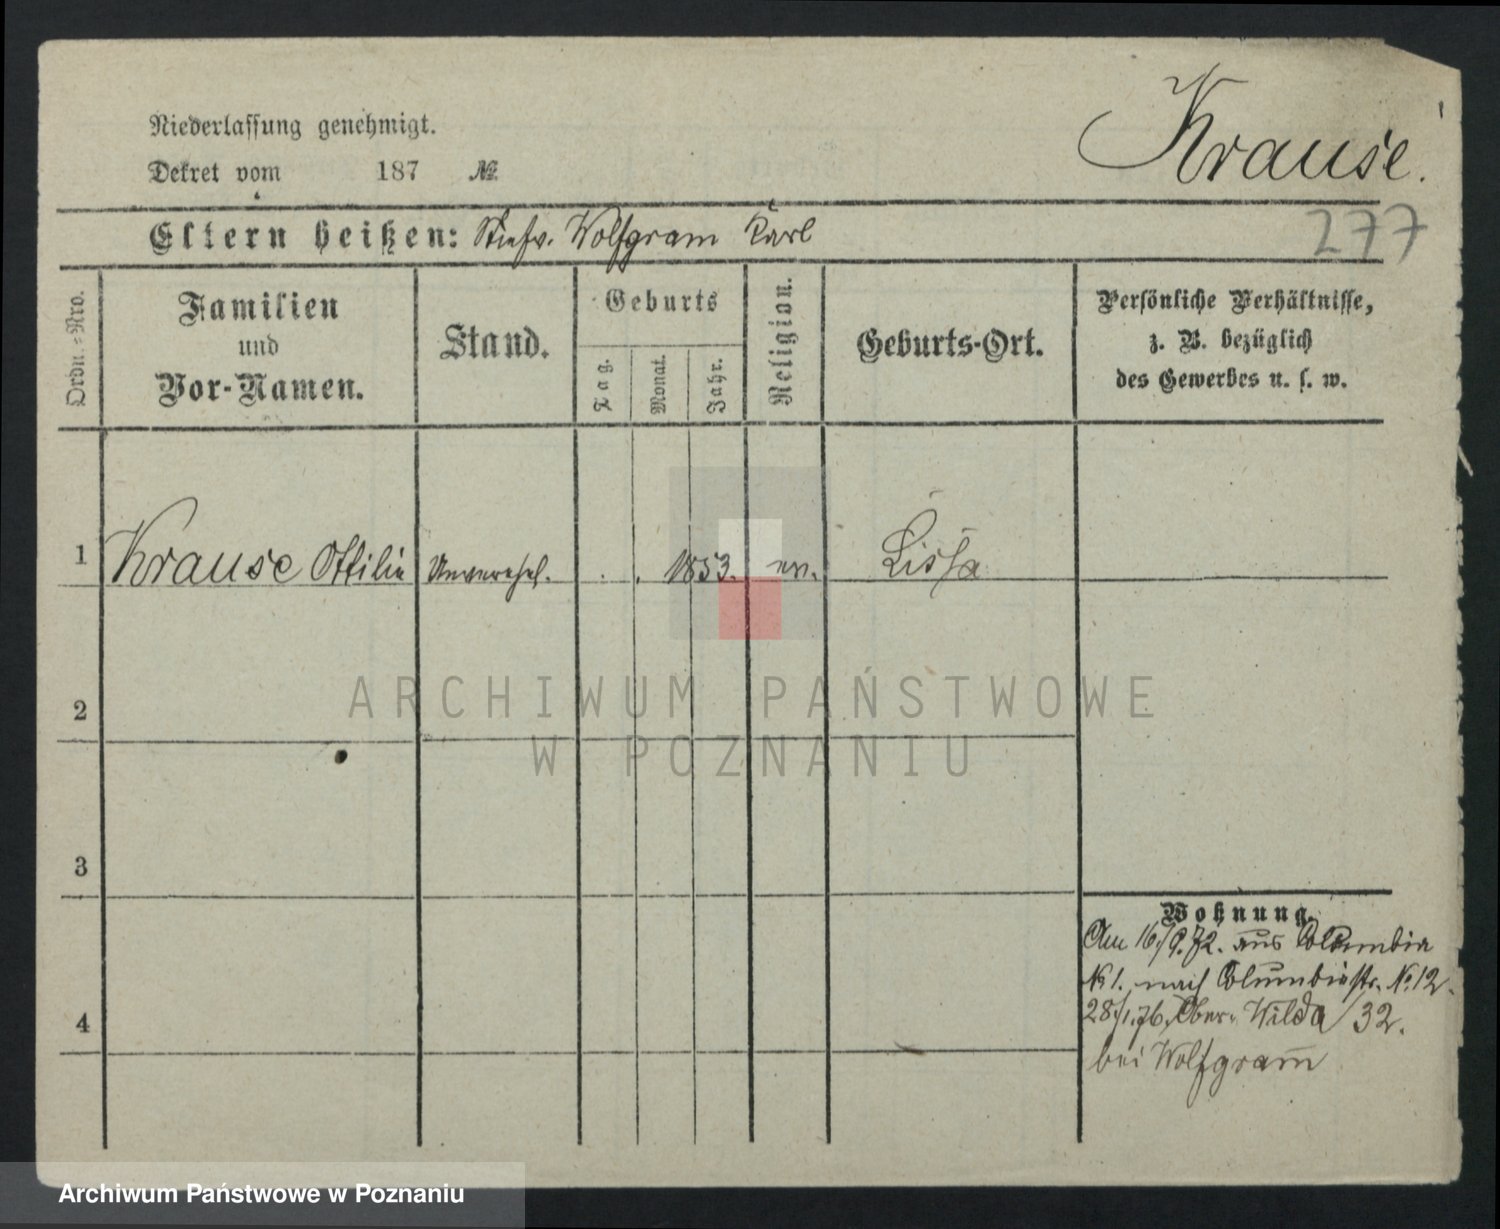 Krause.
Niederlassung genehmigt.
Dekret vom 187 №
277
Eltern heißen: Stiefv. Wolfgram Karl
Ordn.=Nro.
Familien
und
Vor-Namen.
Stand.
Geburts
Tag.
Monat.
Jahr.
Religion.
Geburts-Ort.
Persönliche Verhältnisse,
z. B. bezüglich
des Gewerbes u. s. w.
1 Krause Ottilie Unverehel. . . 1853. ev. Lissa
2
3
4
Wohnung.
Am 16/9.72. aus Columbia
№ 1. nach Columbiastr. № 12.
28/1.76. Ober-Wilda 32.
bei Wolfgram
ARCHIWUM PAŃSTWOWE
W POZNANIU
Archiwum Państwowe w Poznaniu